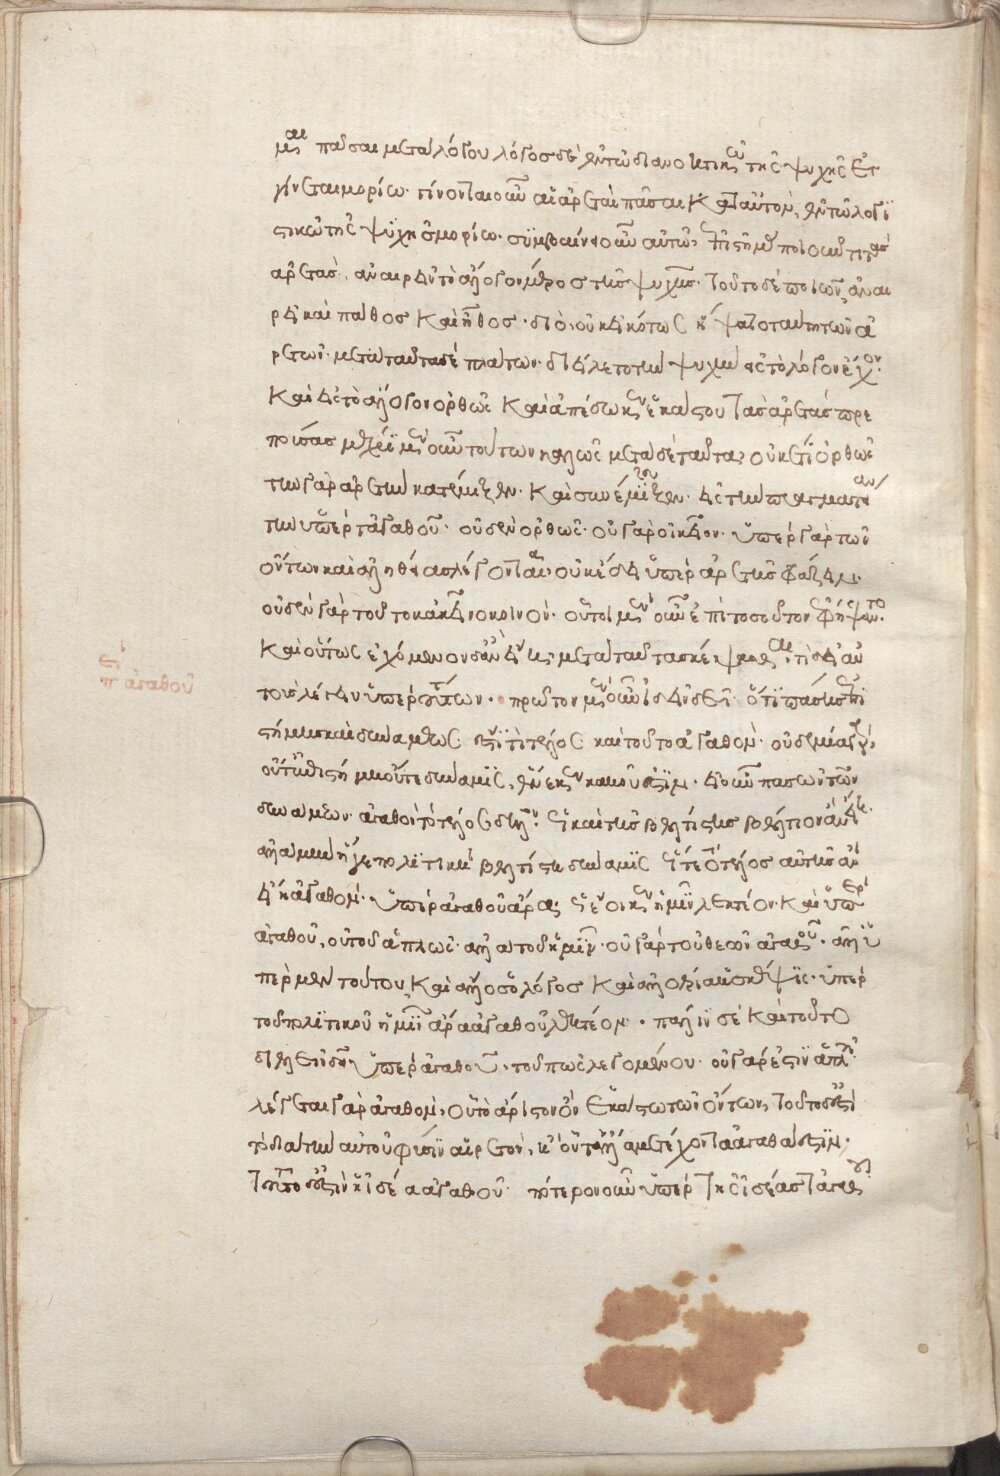 μαι πᾶσαι μετὰ λόγου λόγος δὲ ἐν τῷ διανοητικῷ τῆς ψυχῆς ἐγ
γίνεται μορίῳ· γίνονται οὖν αἱ ἀρεταὶ πᾶσαι κατ' αὐτὸν ἐν τῷ λογι
στικῷ τῆς ψυχῆς μορίῳ· συμβαίνει οὖν αὐτῷ ἐπιστήμας ποιοῦντι τὰς
ἀρετὰς, ἀναιρεῖν τὸ ἄλογον μέρος τῆς ψυχῆς· τοῦτο δὲ ποιῶν, ἀναι
ρεῖ καὶ πάθος καὶ ἦθος· διὸ οὐκ εἰκότως ἥψατο ταύτῃ τῶν ἀ
ρετῶν· μετὰ ταῦτα δὲ πλάτων διείλετο τὴν ψυχὴν εἰς τὸ λόγον ἔχον·
καὶ εἰς τὸ ἄλογον ὀρθῶς καὶ ἀπέδωκεν ἑκάστου τὰς ἀρετὰς πρε
πούσας μέχρι μὲν οὖν τούτων καλῶς μετὰ δὲ ταῦτα, οὐκέτι ὀρθῶς
τὴν γὰρ ἀρετὴν κατέμιξεν· καὶ συνέμιξεν· εἰς τὴν πραγματείαν
τὴν ὑπὲρ τἀγαθοῦ· οὐδὲν ὀρθῶς· οὐ γὰρ οἰκεῖον· ὑπὲρ γὰρ τῶν
ὄντων καὶ ἀληθείας λέγοντα· οὐκ ἔδει ὑπὲρ ἀρετῆς φράζειν·
οὐδὲν γὰρ τούτῳ κἀκείνῳ κοινόν· οὗτοι μὲν οὖν ἐπὶ τοσοῦτον ἐφήψαντο·
καὶ οὕτως ἐχόμενον δ' ἂν εἴη μετὰ ταῦτα σκέψασθαι, τί δεῖ αὐ
τοὺς λέγειν ὑπὲρ τούτων· πρῶτον μὲν οὖν ἰδεῖν δεῖ· ὅτι πάσης ἐπι
στήμης καὶ δυνάμεως ἐστί τι τέλος καὶ τοῦτο ἀγαθόν· οὐδεμία γὰρ
οὔτ' ἐπιστήμη οὔτε δύναμις, ἕνεκεν κακοῦ ἐστίν· εἰ οὖν πασῶν τῶν
δυνάμεων· ἀγαθὸν τὸ τέλος δῆλον· ὡς καὶ τῆς βελτίστης βέλτιον ἂν εἴη·
ἀλλὰ μὴν ἥ γε πολιτικὴ βελτίστη δύναμις ὥστε τὸ τέλος αὐτῆς ἂν
εἴη ἀγαθόν· ὑπὲρ ἀγαθοῦ ἄρα, ὡς ἔοικεν ἡμῖν λεκτέον· καὶ ὑπὲρ
ἀγαθοῦ, οὐ τοῦ ἁπλῶς· ἀλλὰ τοῦ ἡμῖν· οὐ γὰρ τοῦ θεῶν ἀγαθοῦ· ἀλλ' ὑ
πὲρ μὲν τούτου, καὶ ἄλλος ὁ λόγος καὶ ἀλλοτρία ἡ σκέψις· ὑπὲρ
τοῦ πολιτικοῦ ἡμῖν ἄρα ἀγαθοῦ λεκτέον· πάλιν δὲ καὶ τοῦτο
διελεῖν δεῖ· ὑπὲρ ἀγαθοῦ, τοῦ πῶς λεγομένου· οὐ γάρ ἐστιν ἁπλοῦν·
λέγεται γὰρ ἀγαθὸν, οὗ τὸ ἄριστον ὂν ἑκάστῳ τῶν ὄντων, τοῦτο δ' ἐστὶ
τὸ διὰ τὴν αὑτοῦ φύσιν αἱρετόν, ἢ οὗ τἆλλα μετέχοντα ἀγαθά ἐστιν·
τοῦτο δ' ἐστὶν ἡ ἰδέα ἀγαθοῦ· πότερον οὖν ὑπὲρ τῆς ἰδέας τἀγαθοῦ
περὶ ἀγαθοῦ